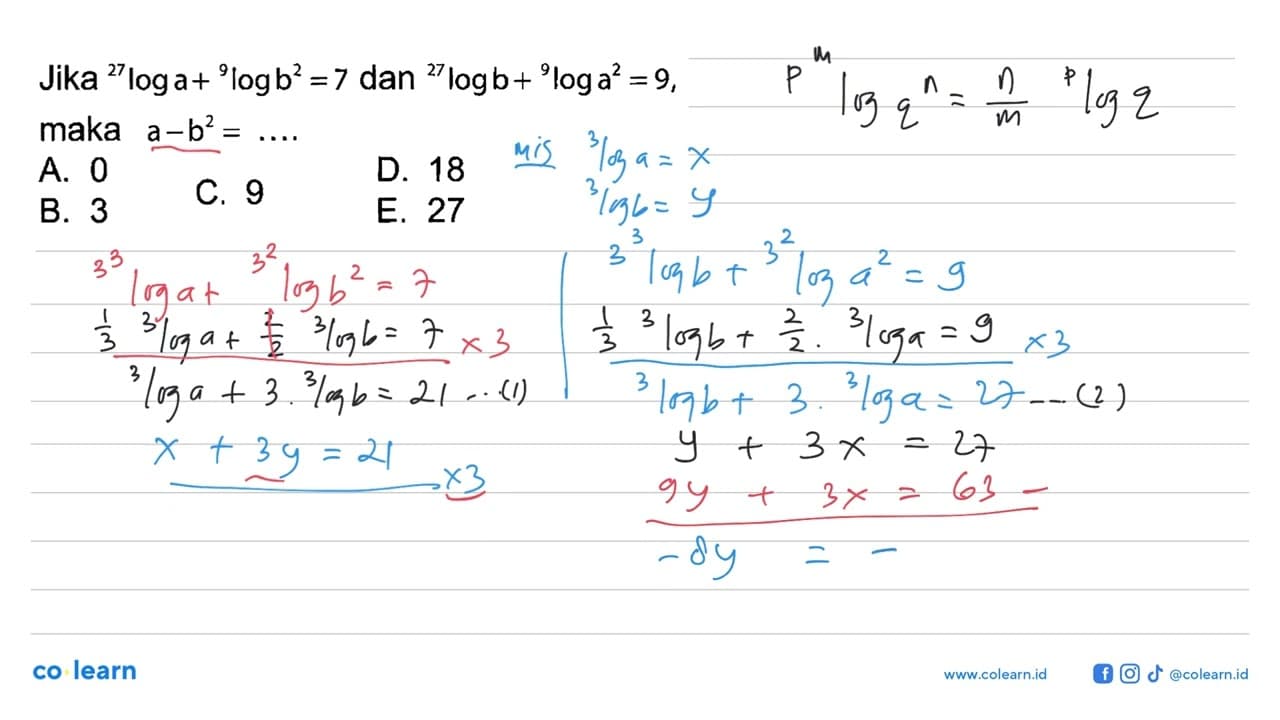 Jika ²⁷log a + ⁹log b² = 7 dan ²⁷log b + ⁹log a² = 9,
maka a – b² = ....
A. 0
B. 3
C. 9
D. 18
E. 27
p^m log q^n = n/m ᵖlog q
Mis ³log a = x
³log b = y
3³ log a + 3² log b² = 7
1/3 ³log a + 2/2 ³log b = 7 ×3
³log a + 3 . ³log b = 21 ...(1)
x + 3y = 21 ×3
3³ log b + 3² log a² = 9
1/3 ³log b + 2/2 . ³log a = 9 ×3
³log b + 3 . ³log a = 27 --- (2)
y + 3x = 27
9y + 3x = 63 –
–8y = –
co learn
www.colearn.id
@colearn.id